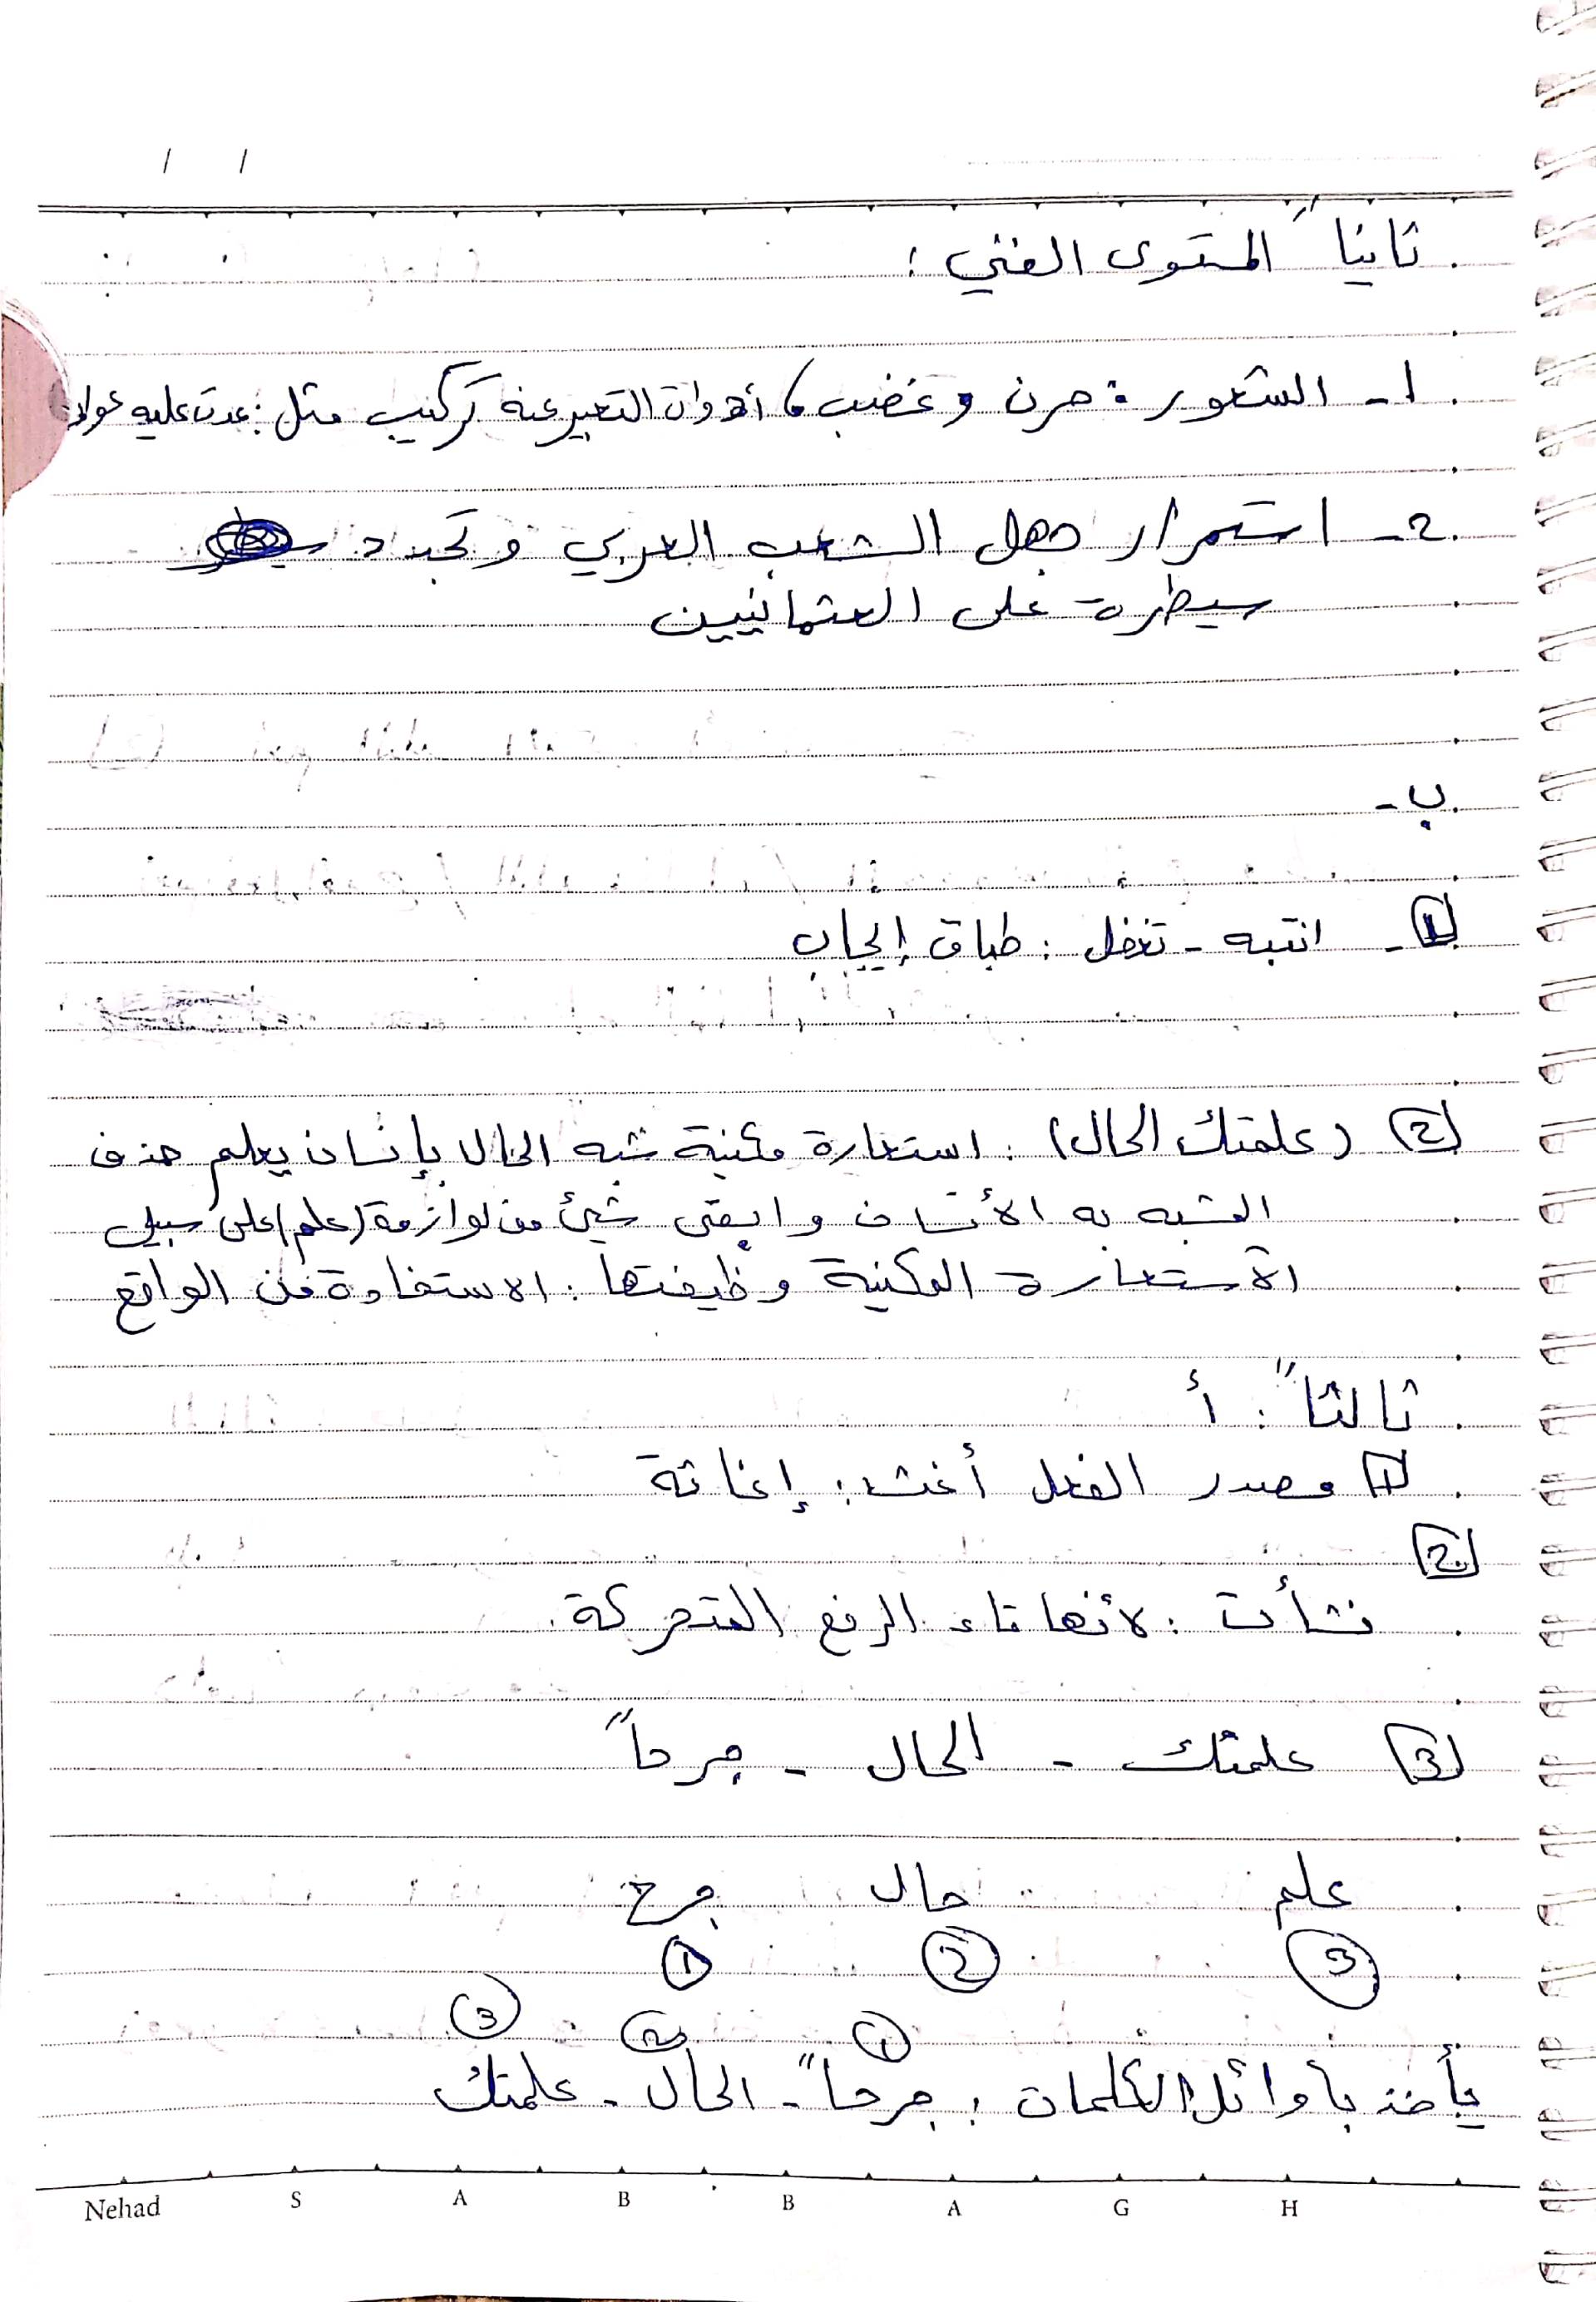 / /
ثانياً المستوى الفني :
1- الشعور : حزن وغضب ، أدوات التعبير عنه تركيب مثل : عدت عليه عواد
2- استمرار جهل الشعب العربي وتجدد
سيطرة على العثمانيين
ب-
1- انتبه - تغفل : طباق إيجاب
2 (علمتك الحال) : استعارة مكنية شبه الحال بإنسان يعلم حذف
المشبه به الأنسان وابقى شيئ من لوازمة (علم) على سبيل
الأستعارة المكنية وظيفتها : الاستفادة من الواقع
ثالثاً : أ
1 مصدر الفعل أغث : إغاثة
2
نشأت : لأنها تاء الرفع المتحركة .
3 علمتك - الحال - جرحاً
علم حال جرح
3 2 1
1 2 3
يأخذ بأوائل الكلمات : جرحاً - الحال - علمتك
Nehad S A B B A G H